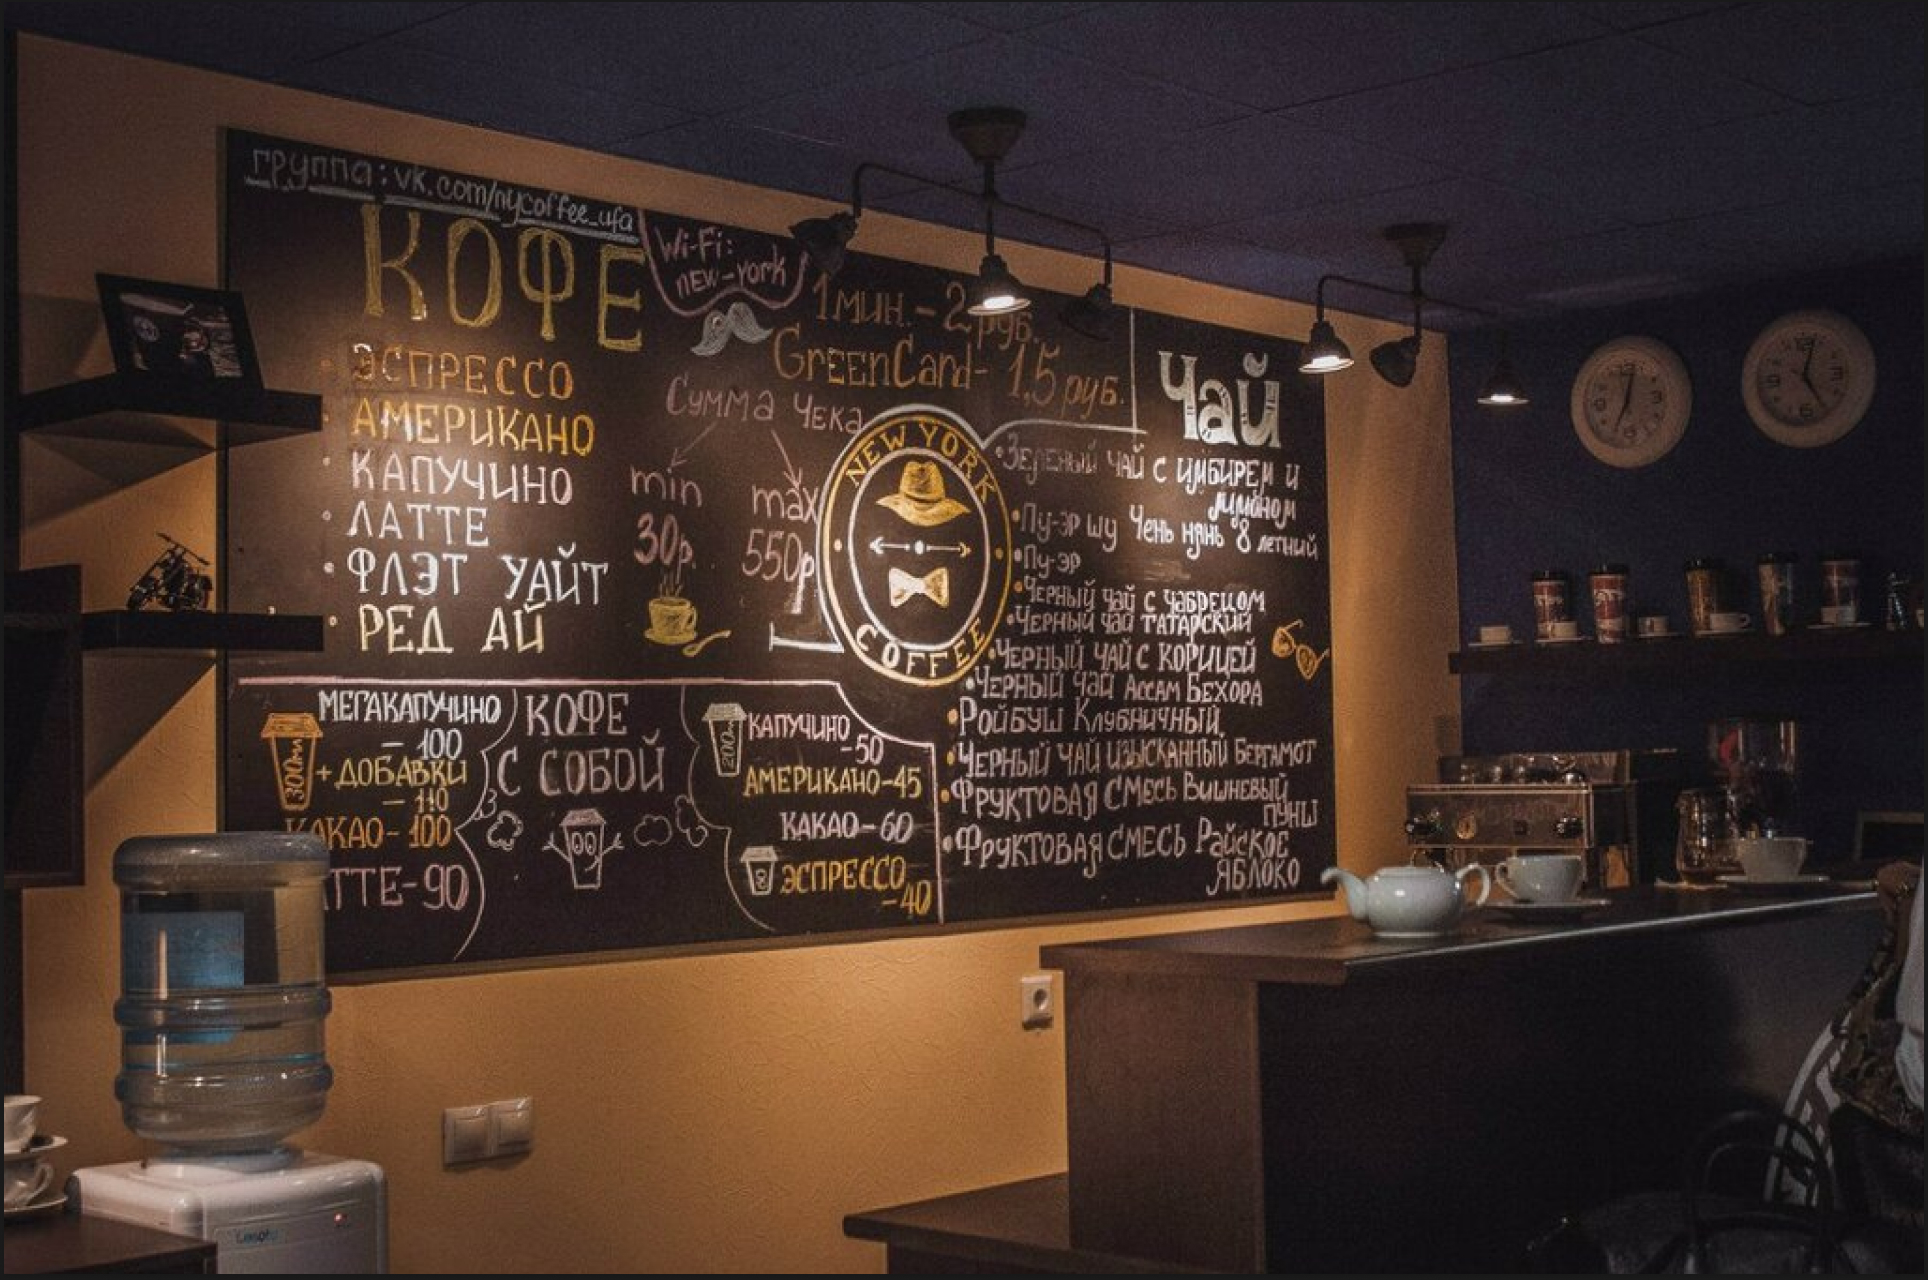 группа: vk.com/nycoffee_ufa
КОФЕ
ЭСПРЕССО
АМЕРИКАНО
КАПУЧИНО
ЛАТТЕ
ФЛЭТ УАЙТ
РЕД АЙ
Wi-Fi:
new-york
1 мин. - 2 руб.
GreenCard - 1,5 руб.
Сумма Чека
min
30р.
max
550р
NEW YORK
COFFEE
Чай
Зеленый чай с имбирем и
лимоном
Пу-эр шу Чень нянь 8 летний
Пу-эр
Черный чай с чабрецом
Черный чай татарский
Черный чай с корицей
Черный чай Ассам Бехора
Ройбуш Клубничный
Черный чай изысканный Бергамот
Фруктовая смесь Вишневый
пунш
Фруктовая смесь Райское
яблоко
МЕГАКАПУЧИНО
- 100
300мл
+ДОБАВКИ
- 110
КАКАО - 100
ТТЕ - 90
КОФЕ
С СОБОЙ
200мл
КАПУЧИНО
- 50
АМЕРИКАНО - 45
КАКАО - 60
ЭСПРЕССО
- 40